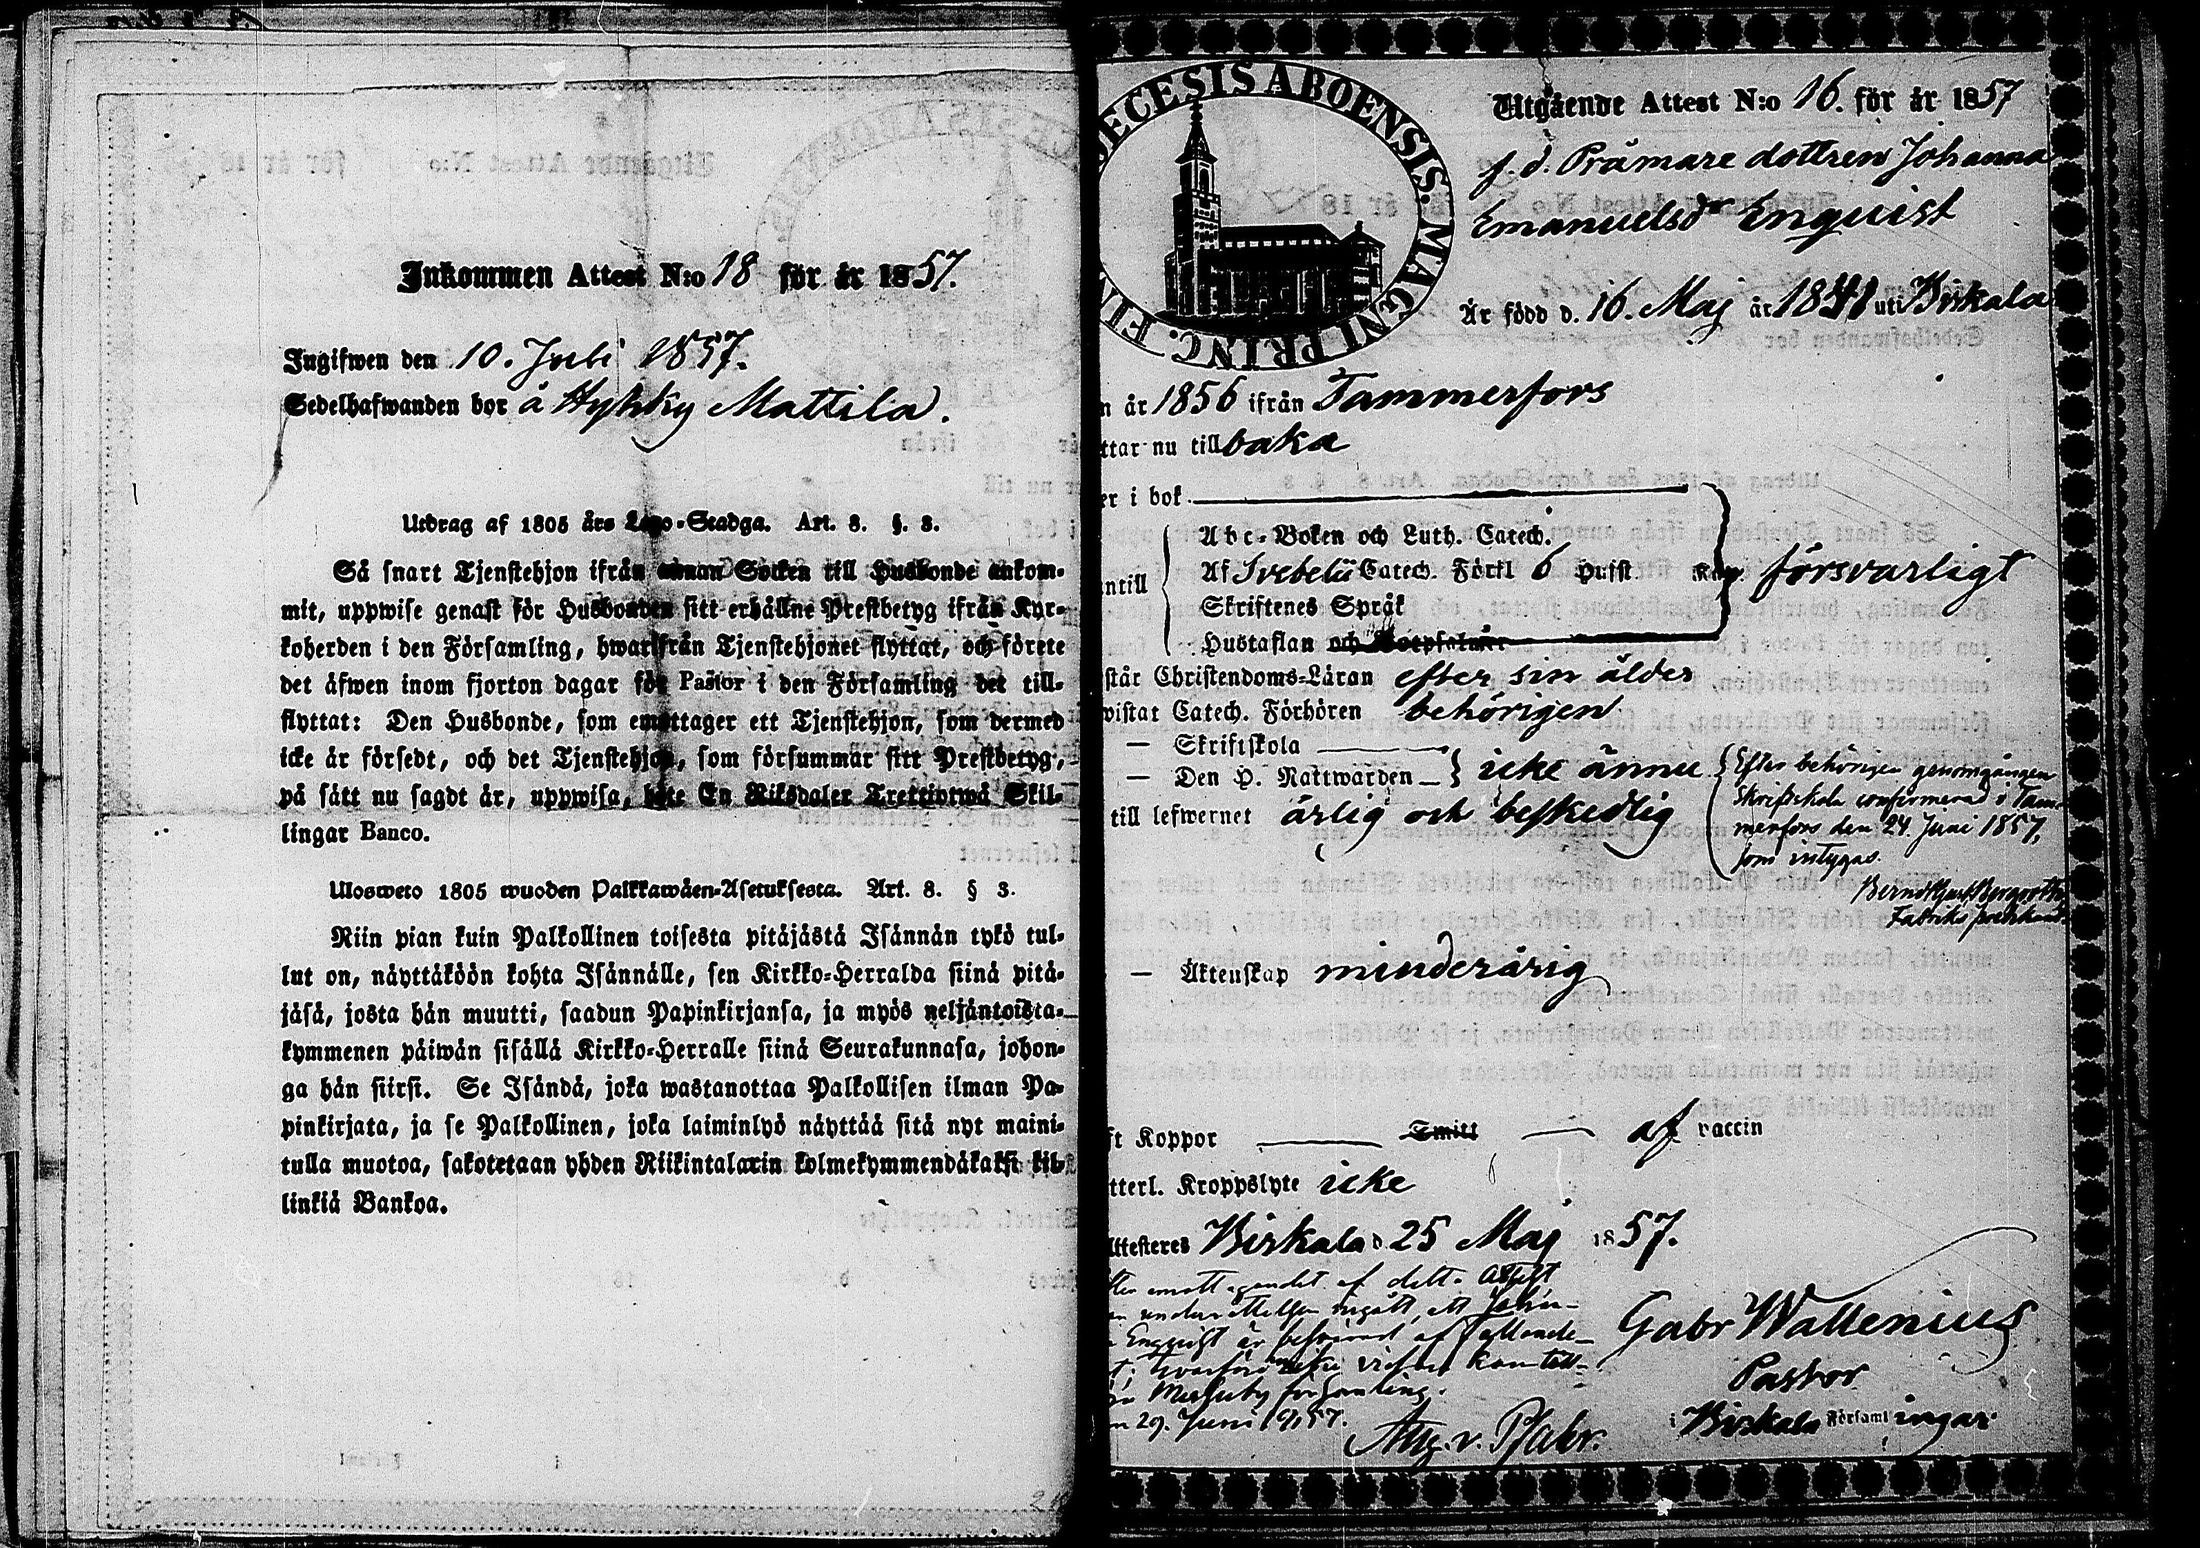 Inkommen Attest N:o 18 för år 1857.
Ingifwen den 10. Juli 1857.
Sedelhafwanden bor å Hyhky Mattila.
Utdrag af 1805 års Lego-Stadga. Art. 8. §. 3.
Så snart Tjenstehjon ifrån annan Socken till Husbonde ankom-
mit, uppwise genast för Husbonden sitt erhållne Prestbetyg ifrån Kyr-
koherden i den Församling, hwarifrån Tjenstehjonet flyttat, och förete
det äfwen inom fjorton dagar för Pastor i den Församling det till-
flyttat: Den Husbonde, som emottager ett Tjenstehjon, som dermed
icke är försedt, och det Tjenstehjon, som försummar sitt Prestbetyg,
på sätt nu sagdt är, uppwisa, böte En Riksdaler Trettiotwå Skil-
lingar Banco.
Ulosweto 1805 wuoden Palkkawäen-Asetuksesta. Art. 8. § 3.
Niin pian kuin Palkollinen toisesta pitäjästä Isännän tykö tul-
lut on, näyttäköön kohta Isännälle, sen Kirkko-Herralda siinä pitä-
jäsä, josta hän muutti, saadun Papinkirjansa, ja myös neljäntoista-
kymmenen päiwän sisällä Kirkko-Herralle siinä Seurakunnasa, johon-
ga hän siirsi. Se Isändä, joka wastanottaa Palkollisen ilman Pa-
pinkirjata, ja se Palkollinen, joka laiminlyö näyttää sitä nyt maini-
tulla muotoa, sakotetaan yhden Riikintalarin kolmekymmendäkaksi kil-
linkiä Bankoa.
ECESIS ABOENSIS. MAGNI PRINC. FIN
Utgående Attest N:o 16. för år 1857
f. d. Pråmare dottren Johanna
Emanuelsdr Enquist
Är född d. 16. Maj år 1841 uti Birkala
n år 1856 ifrån Tammerfors
ttar nu tillbaka
er i bok
ntill
Abc-Boken och Luth. Catech.
Af Svebelii Catech. Förkl 6 Hufst.
Skriftenes Språk
Hustaflan och Botpsalmer
försvarligt
står Christendoms-Läran efter sin ålder
wistat Catech. Förhören behörigen
— Skriftskola
— Den H. Nattwarden — icke ännu
Efter behörigen genomgången
Skriftskola confirmerad i Tam-
merfors den 24. Juni 1857,
som intygas.
Fabriks predikant.
till lefwernet ärlig och beskedlig
— Äktenskap minderårig
ft Koppor Smitt af vaccin
tterl. Kroppslyte icke
Attesteres Birkala d 25 Maj 1857.
Gabr Wallenius
Pastor
i Birkala Församlingar
emottagandet af detta Attest
underrättelsen ingått, att Johan-
Enqvist är besvärad af fallande-
församling.
n 29. Juni 1857.